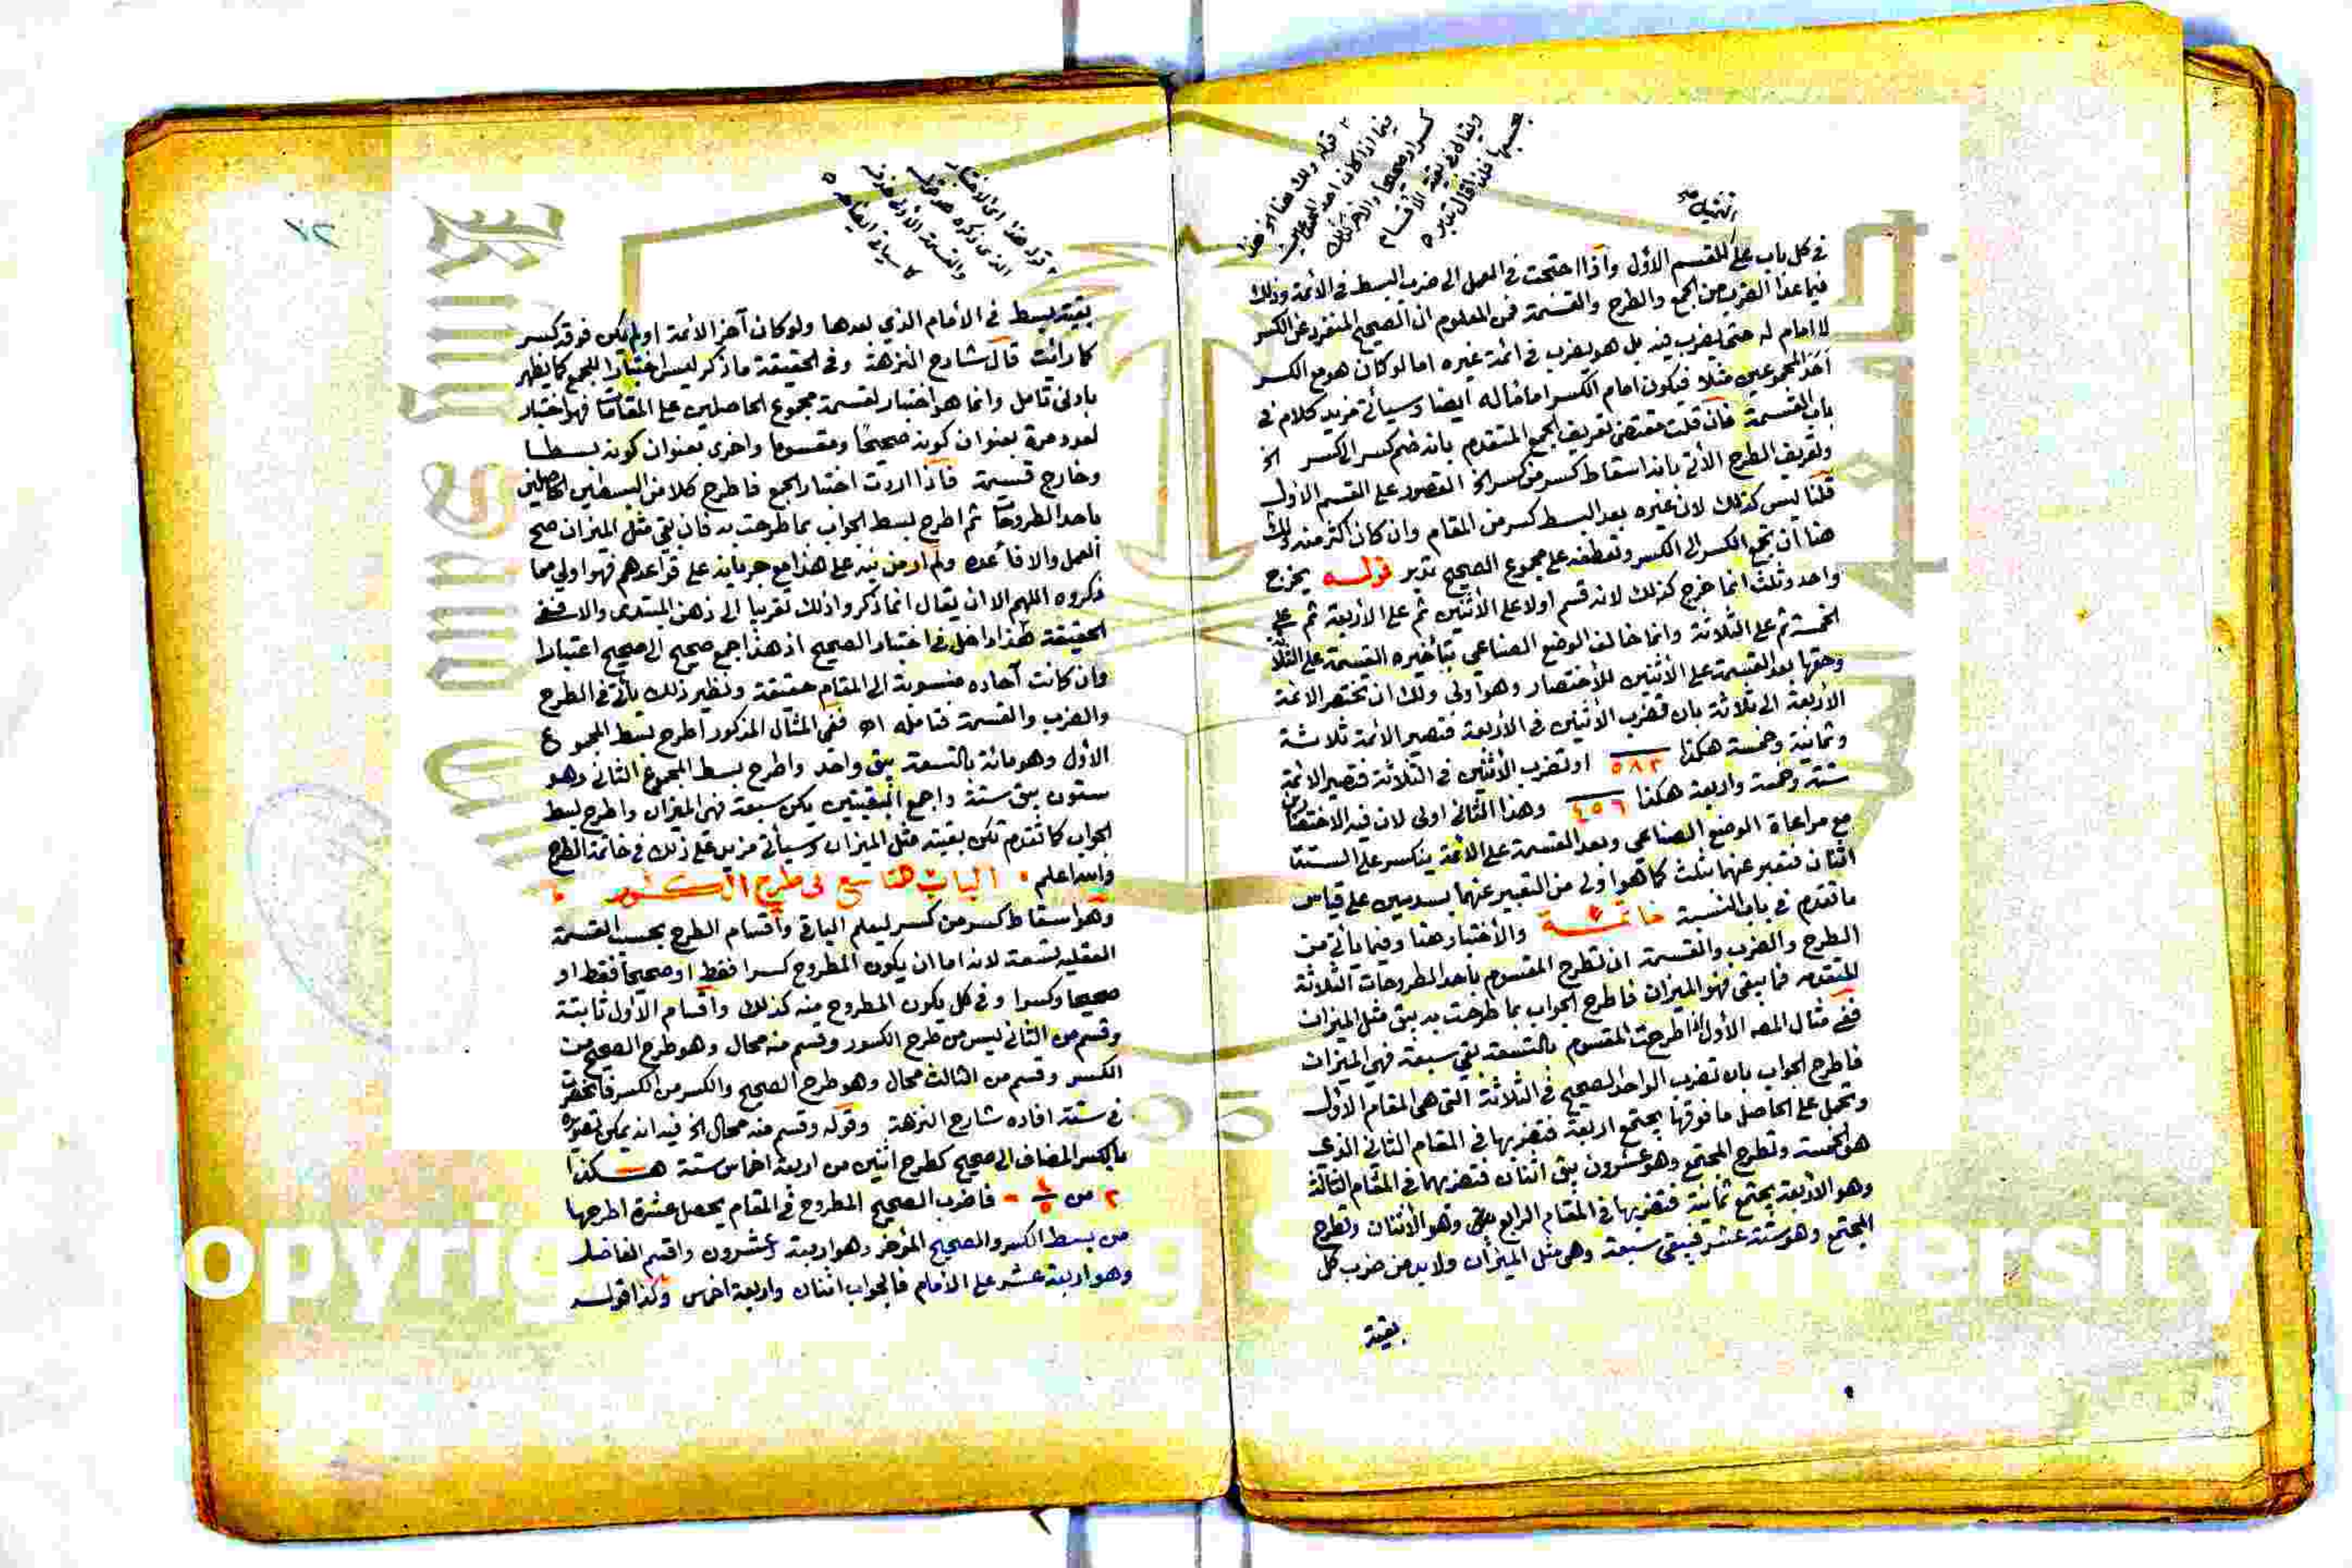 في كل باب على القسم الأول وإذا احتجت في العمل الى ضرب البسط في الأئمة وذلك
فيما عدا الضرب من الجمع والطرح والقسمة فمن المعلوم ان الصحيح المنفرد عن الكسر
لا امام له حتى يضرب فيه بل هو يضرب في ائمة غيره اما لو كان هو مع الكسر
أحد المجموعين مثلا فيكون امام الكسر اماما له أيضا وسيأتي مزيد كلام في
باب القسمة فان قلت مقتضى تعريف الجمع المتقدم بانه ضم كسر الى كسر الخ
وتعريف الطرح الآتي بانه اسقاط كسر من كسر الخ القصور على القسم الاول
قلنا ليس كذلك لان غيره بعد البسط كسر من المقام وان كان اكثر منه ولك
هنا أن تجمع الكسر الى الكسر وتعطفه على مجموع الصحيح تدبر قوله يخرج
واحد وثلث انما خرج كذلك لانه قسم اولا على الأثنين ثم على الأربعة ثم على
الخمسة ثم على الثلاثة وانما خالف الوضع الصناعي بتأخيره القسمة على الثلاثة
وحقها بعد القسمة على الاثنين للأختصار وهو اولى ولك ان تختصر الائمة
الأربعة الى ثلاثة بان تضرب الأثنين في الأربعة فتصير الأئمة ثلاثة
وثمانية وخمسة هكذا ٥٨٣ او تضرب الأثنين في الثلاثة فتصير الائمة
ستة وخمسة واربعة هكذا ٤٥٦ وهذا الثاني اولى لان فيه الاختصار
مع مراعاة الوضع الصناعي وبعد القسمة على الائمة ينكسر على الستة
اثنان فتعبر عنهما بثلث كما هو اولى من التعبير عنهما بسدسين على قياس
ما تقدم في باب النسبة خاتمة والأختبار هنا وفيما يأتي من
الطرح والضرب والقسمة ان تطرح المقسوم بأحد المطروحات الثلاثة
المتقدمه فما يبقى فهو الميزان فاطرح الجواب بما طرحت به يبق مثل الميزان
ففي مثال المصه الأول اذا طرحت المقسوم بالتسعة بقي سبعة فهي الميزان
فاطرح الجواب بان تضرب الواحد الصحيح في الثلاثة التي هي المقام الأول
وتحمل على الحاصل ما فوقها يجتمع اربعة فتضربها في المقام الثاني الذي
هو الخمسة وتطرح المجتمع وهو عشرون يبق اثنان فتضربهما في المقام الثالث
وهو الأربعة يجتمع ثمانية فتضربها في المقام الرابع وهو الأثنان وتطرح
المجتمع وهو ستة عشر فيبقى سبعة وهي مثل الميزان ولا بد من ضرب كل
بقية
٢ قوله ولك هنا
فيما اذا كان احد المجموعين
كسرا وصحيحا والاخر كذلك
ويقال في بقية الأقسام
بحسبها فلذا قال تدبر
٧٢
٢ قوله هذا اى الاختبار
الذى ذكره
والقسمة
كما سيأتي ايضاحه
بقية بسط في الأمام الذي بعدها ولو كان آخر الائمة او لم يكن فوقه كسر
كما رأيت قال شارح النزهة وفي الحقيقة ما ذكر ليس اختبارا للجمع كما يظهر
بادنى تامل وانما هو اختبار لقسمة مجموع الحاصلين على المقامات فهو اختبار
لعدد مرة بعنوان كونه صحيحا ومقسوما واخرى بعنوان كونه بسطا
وخارج قسمة فاذا اردت اختبار الجمع فاطرح كلا من البسطين الحاصلين
باحد الطروحات ثم اطرح بسط الجواب بما طرحت به فان بقي مثل الميزان صح
العمل والا فأعده ولم أر من نبه على هذا مع جريانه على قواعدهم فهو اولى مما
ذكروه اللهم الا ان يقال انما ذكروا ذلك تقريبا الى ذهن المبتدى والا ففي
الحقيقة هذا داخل في اختبار الصحيح اذ هذا جمع صحيح الى صحيح اعتبارا
وان كانت آحاده منسوبة الى المقام حقيقة ونظير ذلك يأتي في الطرح
والضرب والقسمة فتامله اه ففي المثال المذكور اطرح بسط المجموع
الأول وهو مائة بالتسعة يبق واحد واطرح بسط المجموع الثاني وهو
ستون يبق ستة واجمع البقيتين يكن سبعة فهي الميزان واطرح بسط
الجواب كما تقدم تكن بقيته مثل الميزان وسيأتي مزيد على ذلك في خاتمة الطرح
والله اعلم الباب التاسع في طرح الكسور
وهو اسقاط كسر من كسر ليعلم الباقي وأقسام الطرح بحسب القسمة
العقلية تسعة لانه اما ان يكون المطروح كسرا فقط او صحيحا فقط او
صحيحا وكسرا وفي كل يكون المطروح منه كذلك وأقسام الأول ثابتة
وقسم من الثاني ليس من طرح الكسور وقسم منه محال وهو طرح الصحيح من
الكسر وقسم من الثالث محال وهو طرح الصحيح والكسر من الكسر فانحصرت
في ستة افاده شارح النزهة وقوله وقسم منه محال الخ فيه انه يمكن تصوره
بالكسر المضاف الى صحيح كطرح اثنين من اربعة اخماس ستة هكذا
٢ من ٤/٥ ٦ فاضرب الصحيح المطروح في المقام يحصل عشرة اطرحها
من بسط الكسر والصحيح المؤخر وهو اربعة وعشرون واقسم الفاضل
وهو اربعة عشر على الامام فالجواب اثنان واربعة اخماس وكذا قوله